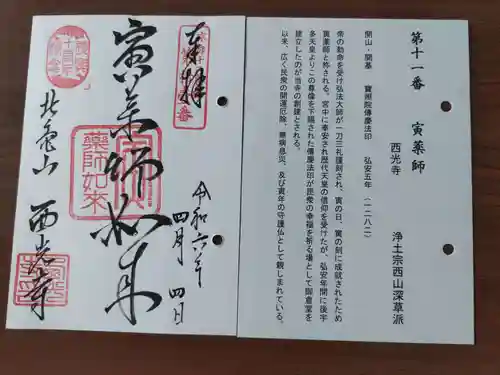 奉拝
寅薬師如来
令和六年
四月四日
北亀山 西光寺
薬師如来
第十一番 寅薬師
西光寺
浄土宗西山深草派
開山・開基 寶照院傳慶法印 弘安五年(一二八二)
帝の勅命を受け弘法大師が一刀三礼謹刻され、寅の日、寅の刻に成就されたため
寅薬師と称される。宮中に奉安され歴代天皇の信仰を受けたが、弘安年間に後宇
多天皇よりこの尊像を下賜された傳慶法印が民衆の幸福を祈る場として御倉堂を
建立したのが当寺の創建とされる。
以来、広く民衆の開運厄除、無病息災、及び寅年の守護仏として親しまれている。